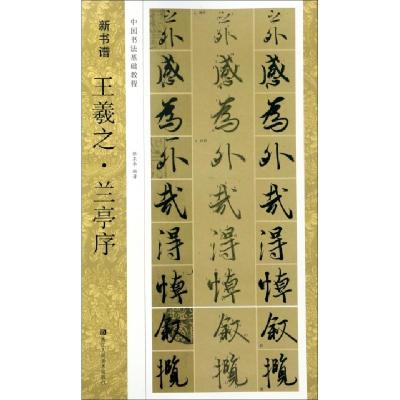 新书谱
王羲之·兰亭序
中国书法基础教程
之外感為外哉得悼敘攬
之外感為外哉得悼敘攬
之外感為外哉得悼敘攬